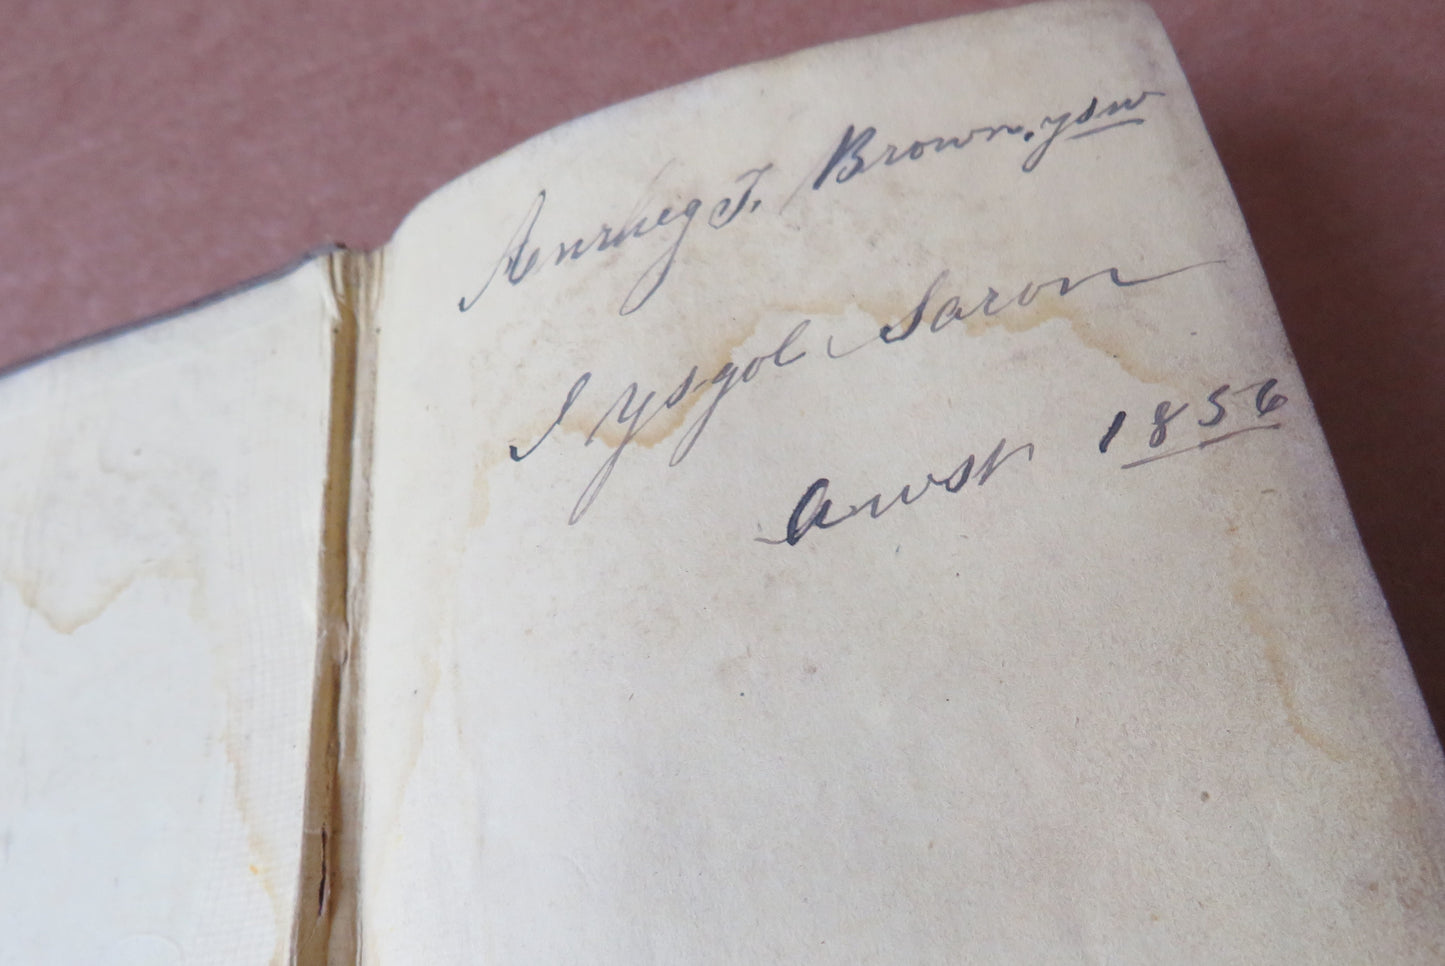 Anrheg T. Brown. ysw
I Ysgol Saron
Awst 1856